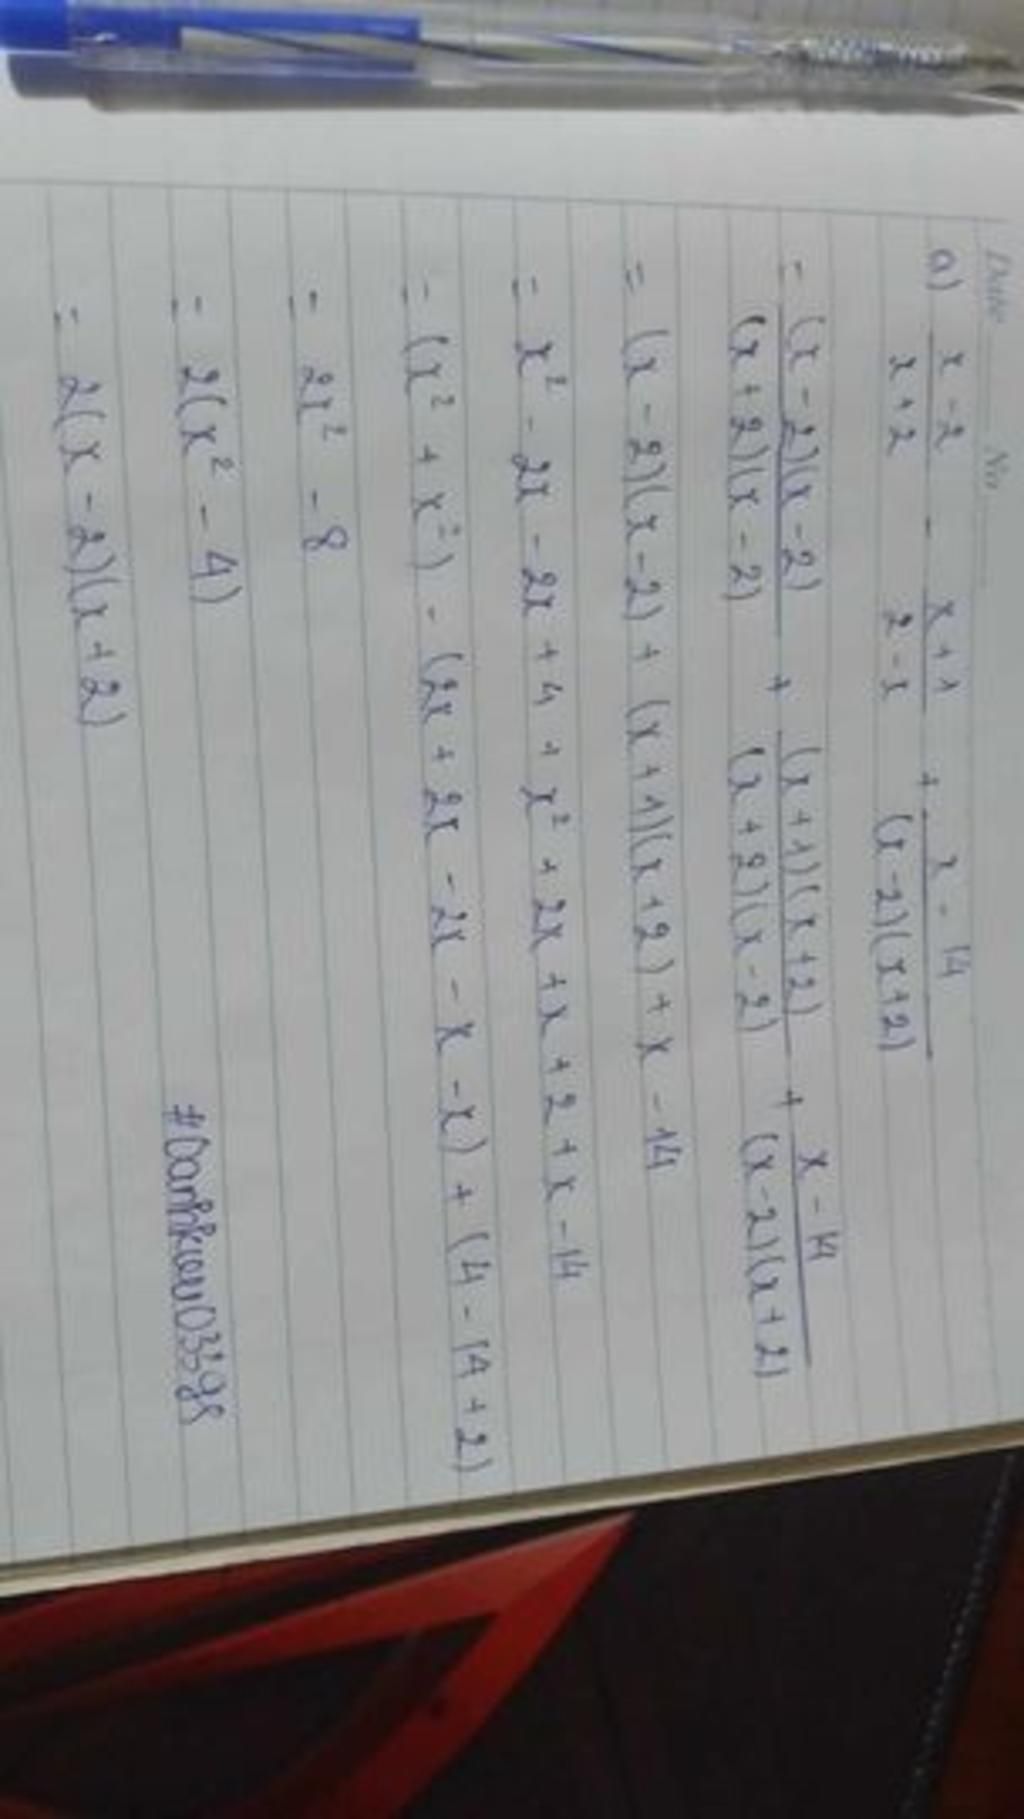 Date No
a) x - 2 / x + 2 - x + 1 / 2 - x + x - 14 / (x - 2)(x + 2)
= (x - 2)(x - 2) / (x + 2)(x - 2) + (x + 1)(x + 2) / (x + 2)(x - 2) + x - 14 / (x - 2)(x + 2)
= (x - 2)(x - 2) + (x + 1)(x + 2) + x - 14
= x² - 2x - 2x + 4 + x² + 2x + x + 2 + x - 14
= (x² + x²) - (2x + 2x - 2x - x - x) + (4 - 14 + 2)
= 2x² - 8
= 2(x² - 4)
= 2(x - 2)(x + 2)